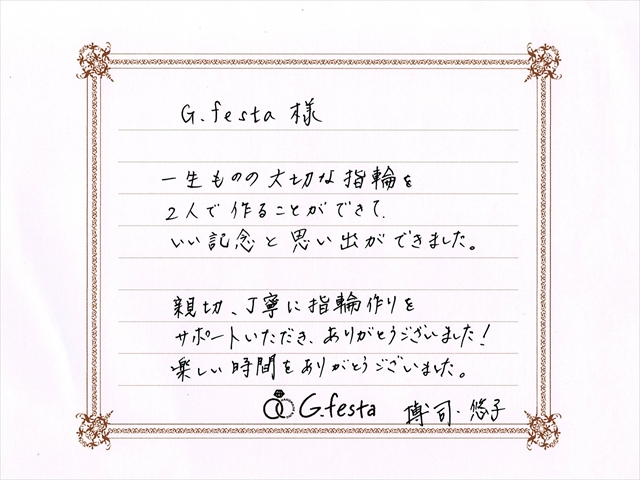 G.festa 様
一生ものの大切な指輪を
2人で作ることができて、
いい記念と思い出ができました。
親切、丁寧に指輪作りを
サポートいただき、ありがとうございました!
楽しい時間をありがとうございました。
G.festa 博司・悠子